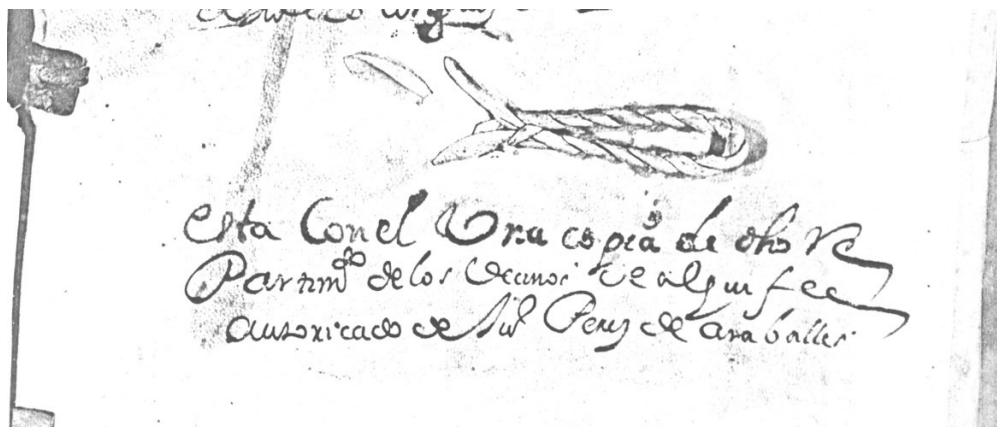 esta Con el Una copia de dho Re
Partimto de los Vecinos de alquife e
autoricado de Perez de araballes